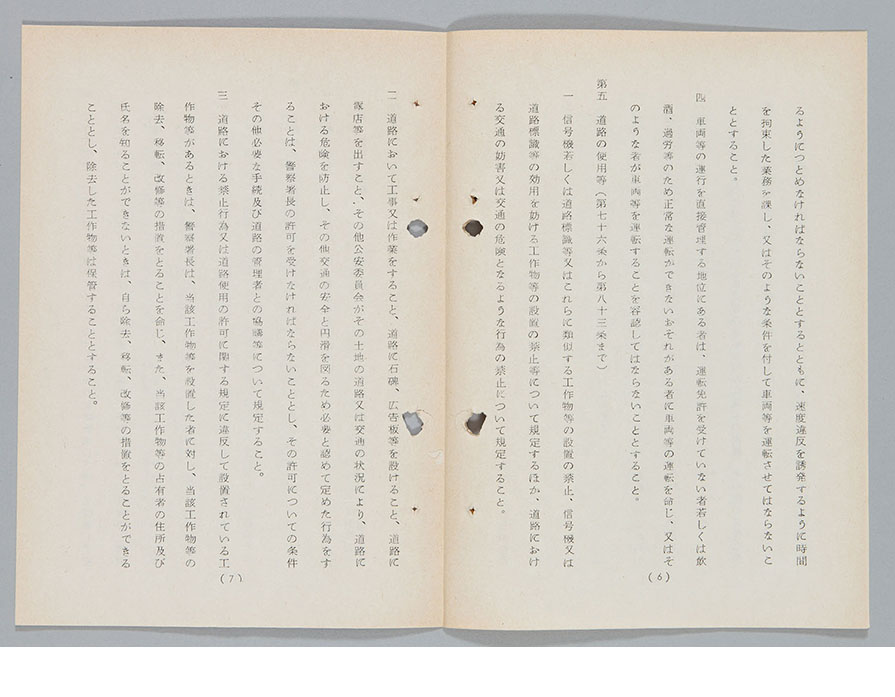 るようにつとめなければならないこととするとともに、速度違反を誘発するように時間
を拘束した業務を課し、又はそのような条件を付して車両等を運転させてはならないこ
ととすること。
四 車両等の運行を直接管理する地位にある者は、運転免許を受けていない者若しくは飲
酒、過労等のため正常な運転ができないおそれがある者に車両等の運転を命じ、又はそ
のような者が車両等を運転することを容認してはならないこととすること。
第五 道路の使用等(第七十六条から第八十三条まで)
一 信号機若しくは道路標識等又はこれらに類似する工作物等の設置の禁止、信号機又は
道路標識等の効用を妨げる工作物等の設置の禁止等について規定するほか、道路におけ
る交通の妨害又は交通の危険となるような行為の禁止について規定すること。
(6)
二 道路において工事又は作業をすること、道路に石碑、広告板等を設けること、道路に
露店等を出すこと、その他公安委員会がその土地の道路又は交通の状況により、道路に
おける危険を防止し、その他交通の安全と円滑を図るため必要と認めて定めた行為をす
ることは、警察署長の許可を受けなければならないこととし、その許可についての条件
その他必要な手続及び道路の管理者との協議等について規定すること。
三 道路における禁止行為又は道路使用の許可に関する規定に違反して設置されている工
作物等があるときは、警察署長は、当該工作物等を設置した者に対し、当該工作物等の
除去、移転、改修等の措置をとることを命じ、また、当該工作物等の占有者の住所及び
氏名を知ることができないときは、自ら除去、移転、改修等の措置をとることができる
こととし、除去した工作物等は保管することとすること。
(7)